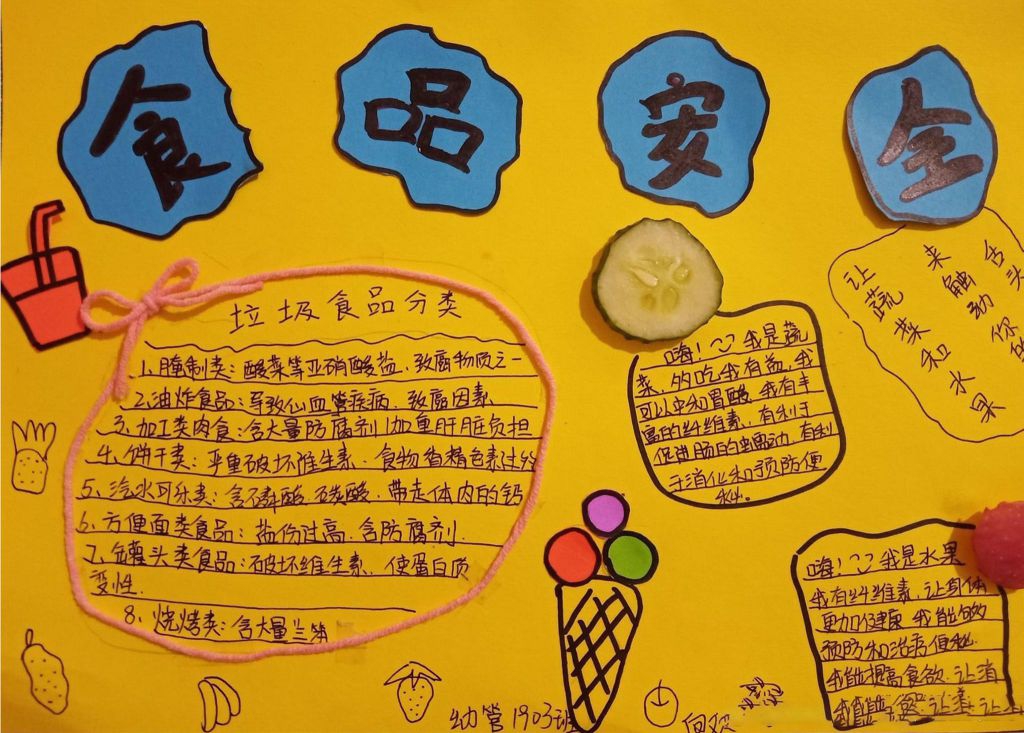 食品安全
垃圾食品分类
1、腌制类：酸菜等亚硝酸盐、致癌物质之一
2、油炸食品：导致心血管疾病、致癌因素
3、加工类肉食：含大量防腐剂加重肝脏负担
4、饼干类：严重破坏维生素、食物香精色素过多
5、汽水可乐类：含磷酸、碳酸、带走体内的钙
6、方便面类食品：盐份过高、含防腐剂
7、罐头类食品：破坏维生素、使蛋白质
变性
8、烧烤类：含大量
让蔬菜和水果
来触动你的
舌头
嗨！我是蔬
菜、多吃我有益、我
可以中和胃酸、我有丰
富的纤维素、有利于
促进肠的蠕动、有利
于消化和预防便
秘。
嗨！我是水果
我有纤维素、让身体
更加健康 我能够
预防和治疗便秘
我能提高食欲、让消
幼管1903班